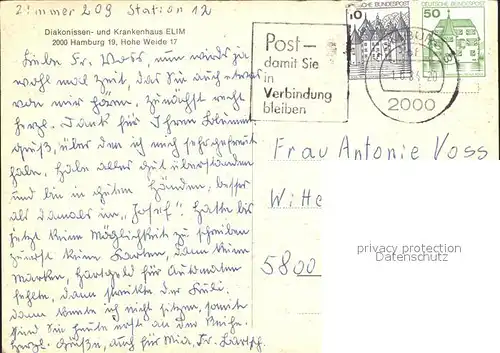 Zimmer 209 Station 12
Diakonissen- und Krankenhaus ELIM
2000 Hamburg 19, Hohe Weide 17
Liebe Fr. Voss, nun wirds ja
wohl mal Zeit, daß Sie auch etwas
von mir hören. Zunächst recht
herzl. Dank für Ihren Blumen
gruß, über den ich mich sehr gefreut
habe. Habe alles gut überstanden
und bin in guten Händen, besser
als damals im "Josef". Hatte bis
jetzt keine Möglichkeit zu schreiben
zuerst keine Karten, dann keine
Marken, Hartgeld für Automaten
fehlte, dann streikte der Kuli.
Dann konnte ich nicht sitzen, somit
sind Sie heute erst an der Reihe.
Herzl. Grüße, auch für Mia, Fr.
Post –
damit Sie
in
Verbindung
bleiben
10
DEUTSCHE BUNDESPOST
50
2000
Frau Antonie Voss
Witte
5800
privacy protection
Datenschutz